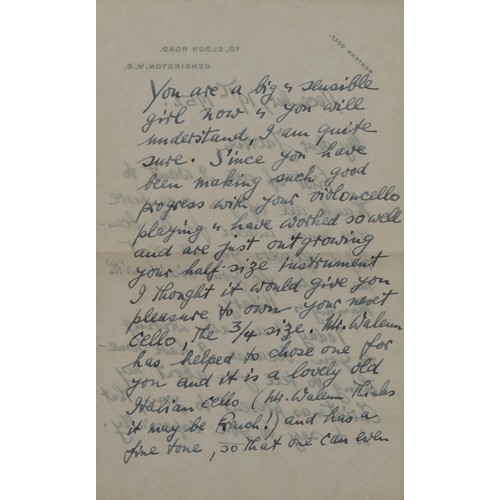 WESTERN 0247.
10, ELDON ROAD.
KENSINGTON, W. 8.
You are a big & sensible
girl now & you will
understand, I am quite
sure. Since you have
been making such good
progress with your violoncello
playing & have worked so well
and are just outgrowing
your half-size instrument
I thought it would give you
pleasure to own your next
cello, the 3/4 size. Mr. Walenn
has helped to chose one for
you and it is a lovely old
Italian cello (Mr. Walenn thinks
it may be French!) and has a
fine tone, so that one can even